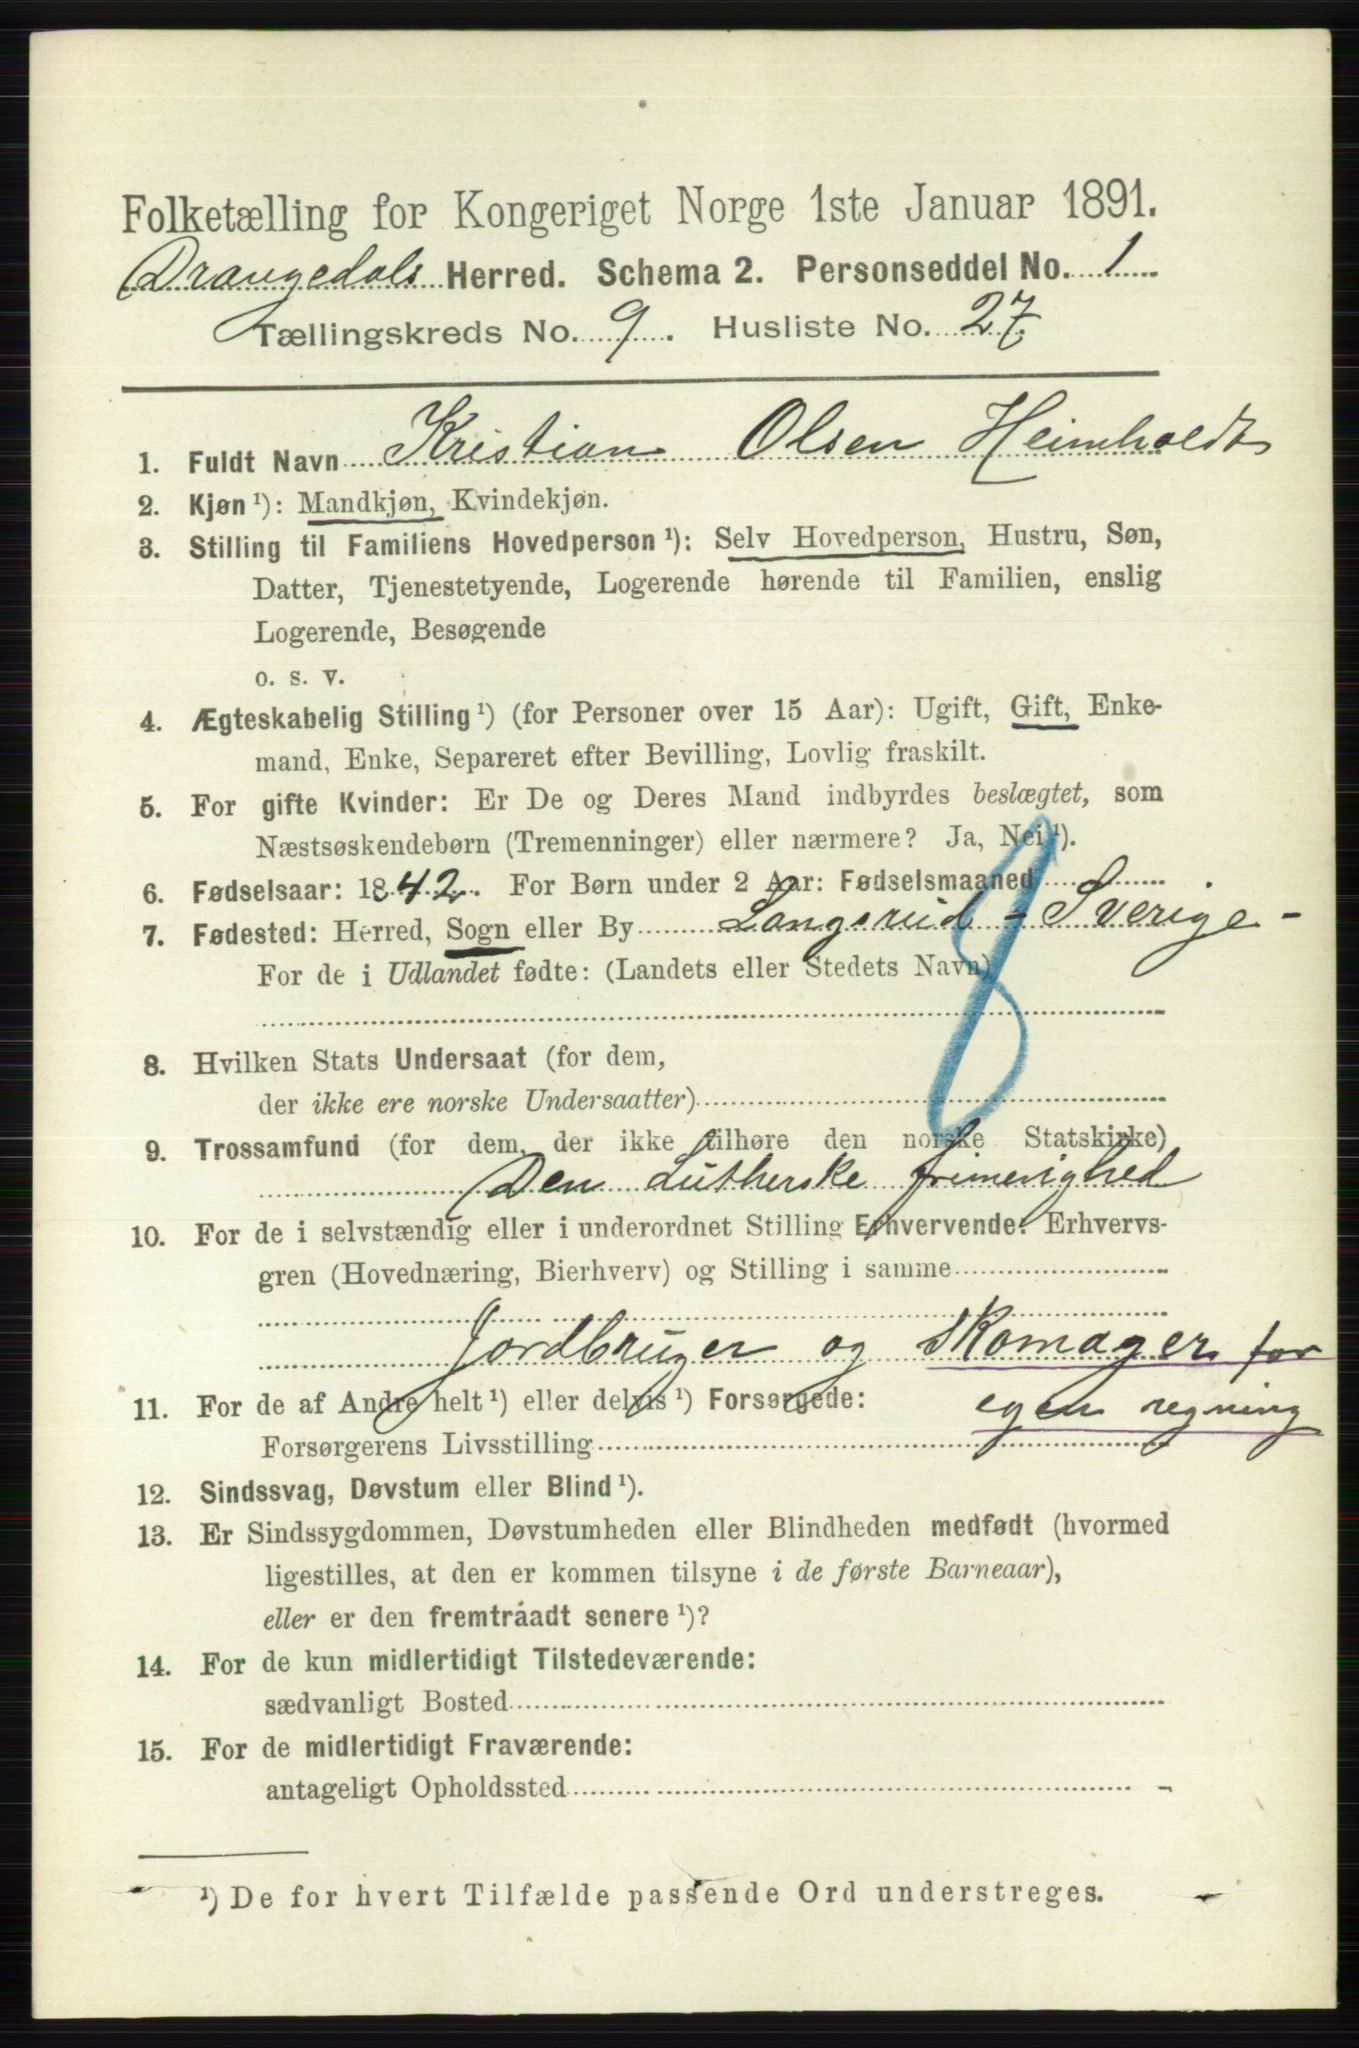 Folketælling for Kongeriget Norge 1ste Januar 1891.
Drangedals Herred. Schema 2. Personseddel No. 1
Tællingskreds No. 9. Husliste No. 27.
1. Fuldt Navn Kristian Olsen Heimholdt
2. Kjøn ¹): Mandkjøn, Kvindekjøn.
3. Stilling til Familiens Hovedperson ¹): Selv Hovedperson, Hustru, Søn,
Datter, Tjenestetyende, Logerende hørende til Familien, enslig
Logerende, Besøgende
o. s. v.
4. Ægteskabelig Stilling ¹) (for Personer over 15 Aar): Ugift, Gift, Enke-
mand, Enke, Separeret efter Bevilling, Lovlig fraskilt.
5. For gifte Kvinder: Er De og Deres Mand indbyrdes beslægtet, som
Næstsøskendebørn (Tremenninger) eller nærmere? Ja, Nei ¹).
6. Fødselsaar: 1842. For Børn under 2 Aar: Fødselsmaaned
7. Fødested: Herred, Sogn eller By Langsrud - Sverige -
For de i Udlandet fødte: (Landets eller Stedets Navn)
8
8. Hvilken Stats Undersaat (for dem,
der ikke ere norske Undersaatter)
9. Trossamfund (for dem, der ikke tilhøre den norske Statskirke)
Den Lutherske frimenighed
10. For de i selvstændig eller i underordnet Stilling Erhvervende: Erhvervs-
gren (Hovednæring, Bierhverv) og Stilling i samme
Jordbruger og Skomager for
egen regning
11. For de af Andre helt ¹) eller delvis ¹) Forsørgede:
Forsørgerens Livsstilling
12. Sindssvag, Døvstum eller Blind ¹).
13. Er Sindssygdommen, Døvstumheden eller Blindheden medfødt (hvormed
ligestilles, at den er kommen tilsyne i de første Barneaar),
eller er den fremtraadt senere ¹)?
14. For de kun midlertidigt Tilstedeværende:
sædvanligt Bosted
15. For de midlertidigt Fraværende:
antageligt Opholdssted
¹) De for hvert Tilfælde passende Ord understreges.